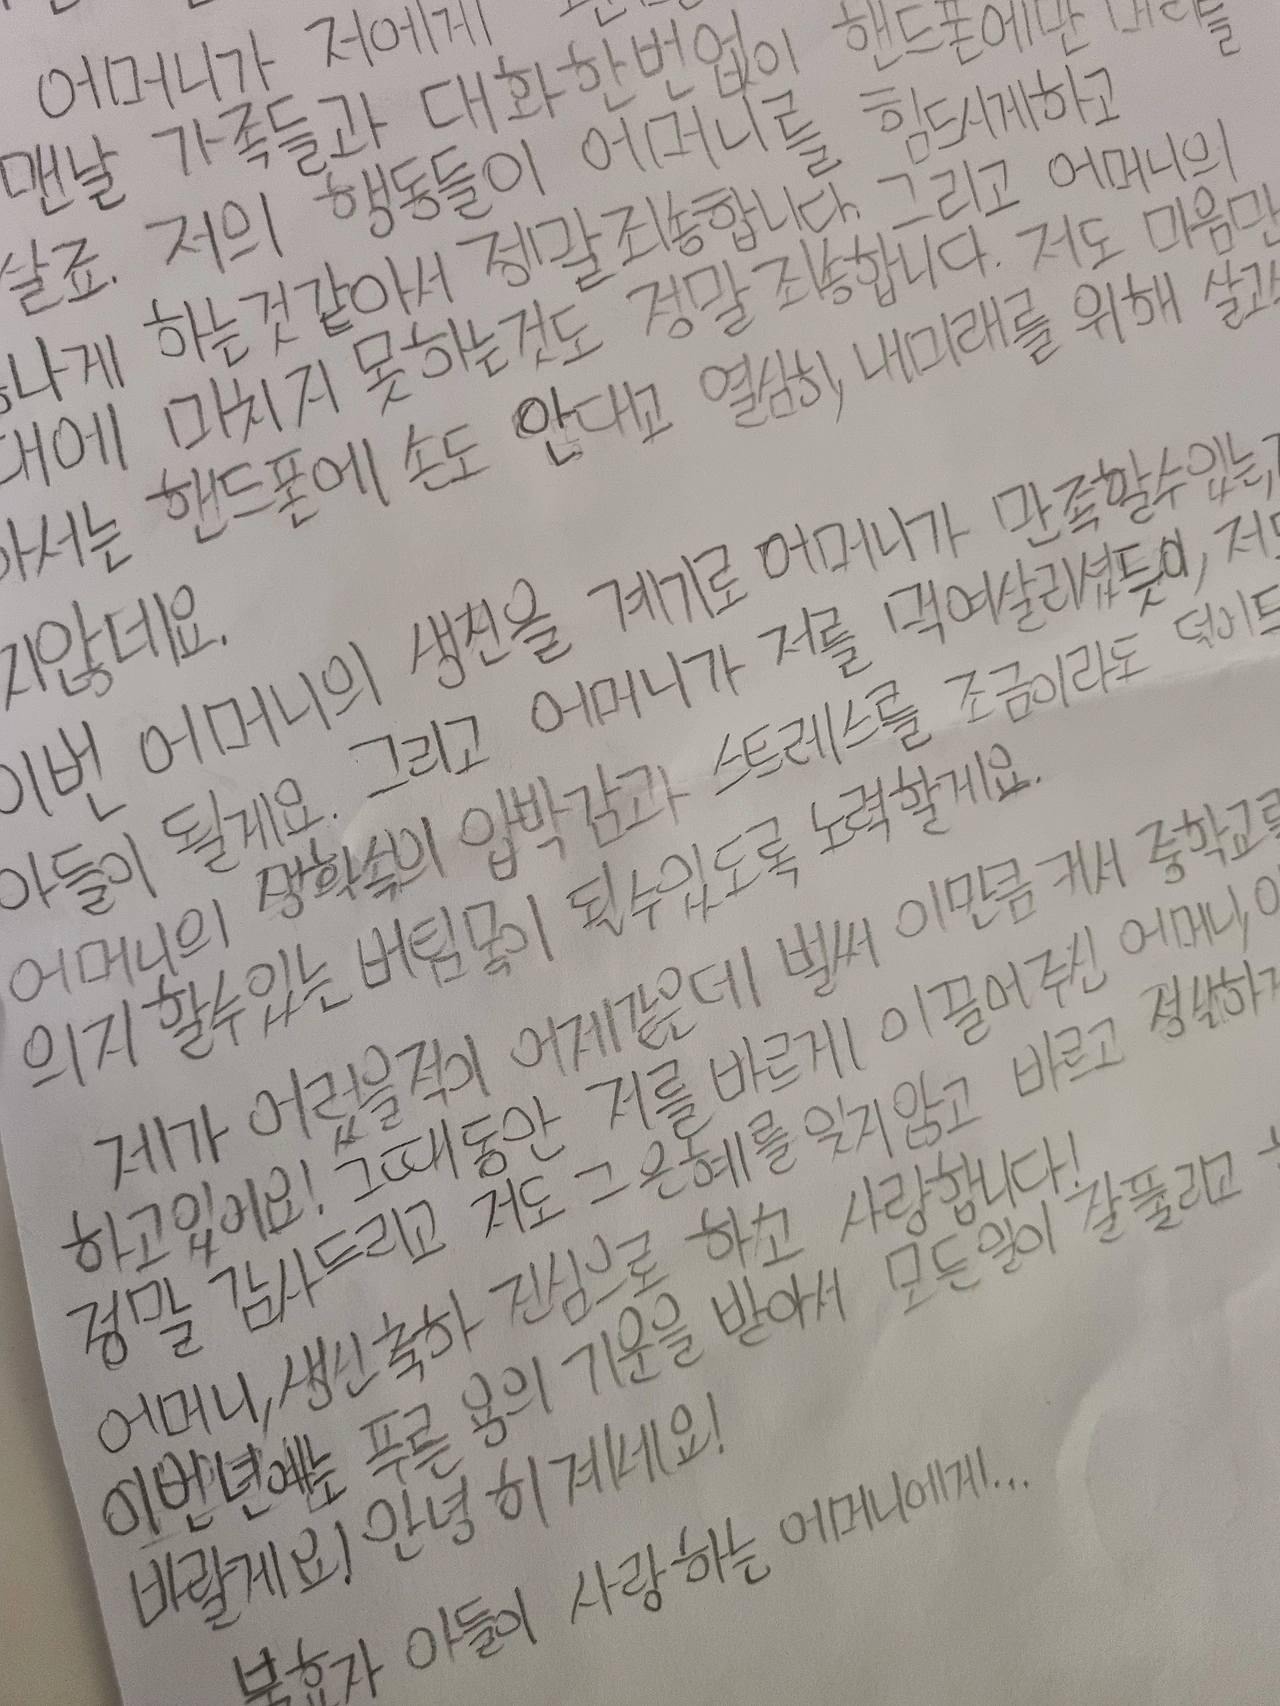 어머니가 저에게
맨날 가족들과 대화한번없이 핸드폰에만 머리를
살죠. 저의 행동들이 어머니를 힘드시게하고
나게 하는것같아서 정말죄송합니다. 그리고 어머니의
대에 마치지 못하는것도 정말죄송합니다. 저도 마음만
아서는 핸드폰에 손도 안대고 열심히, 내미래를 위해 살고
지않네요.
이번 어머니의 생신을 계기로 어머니가 만족할수있는
아들이 될게요. 그리고 어머니가 저를 먹여살리셨듯이, 저도
어머니의 생학속의 압박감과 스트레스를 조금이라도 덜어드
의지할수있는 버팀목이 될수있도록 노력할게요.
제가 어렸을적이 어제같은데 벌써 이만큼 커서 중학교를
하고있어요! 그때동안 저를 바르게 이끌어주신 어머니,
정말 감사드리고 저도 그 은혜를 잊지않고 바르고 정직하게
어머니, 생신축하 진심으로 하고 사랑합니다!
이번년에는 푸른 용의 기운을 받아서 모든일이 잘풀리고
바랄게요! 안녕히계세요!
불효자 아들이 사랑하는 어머니에게...